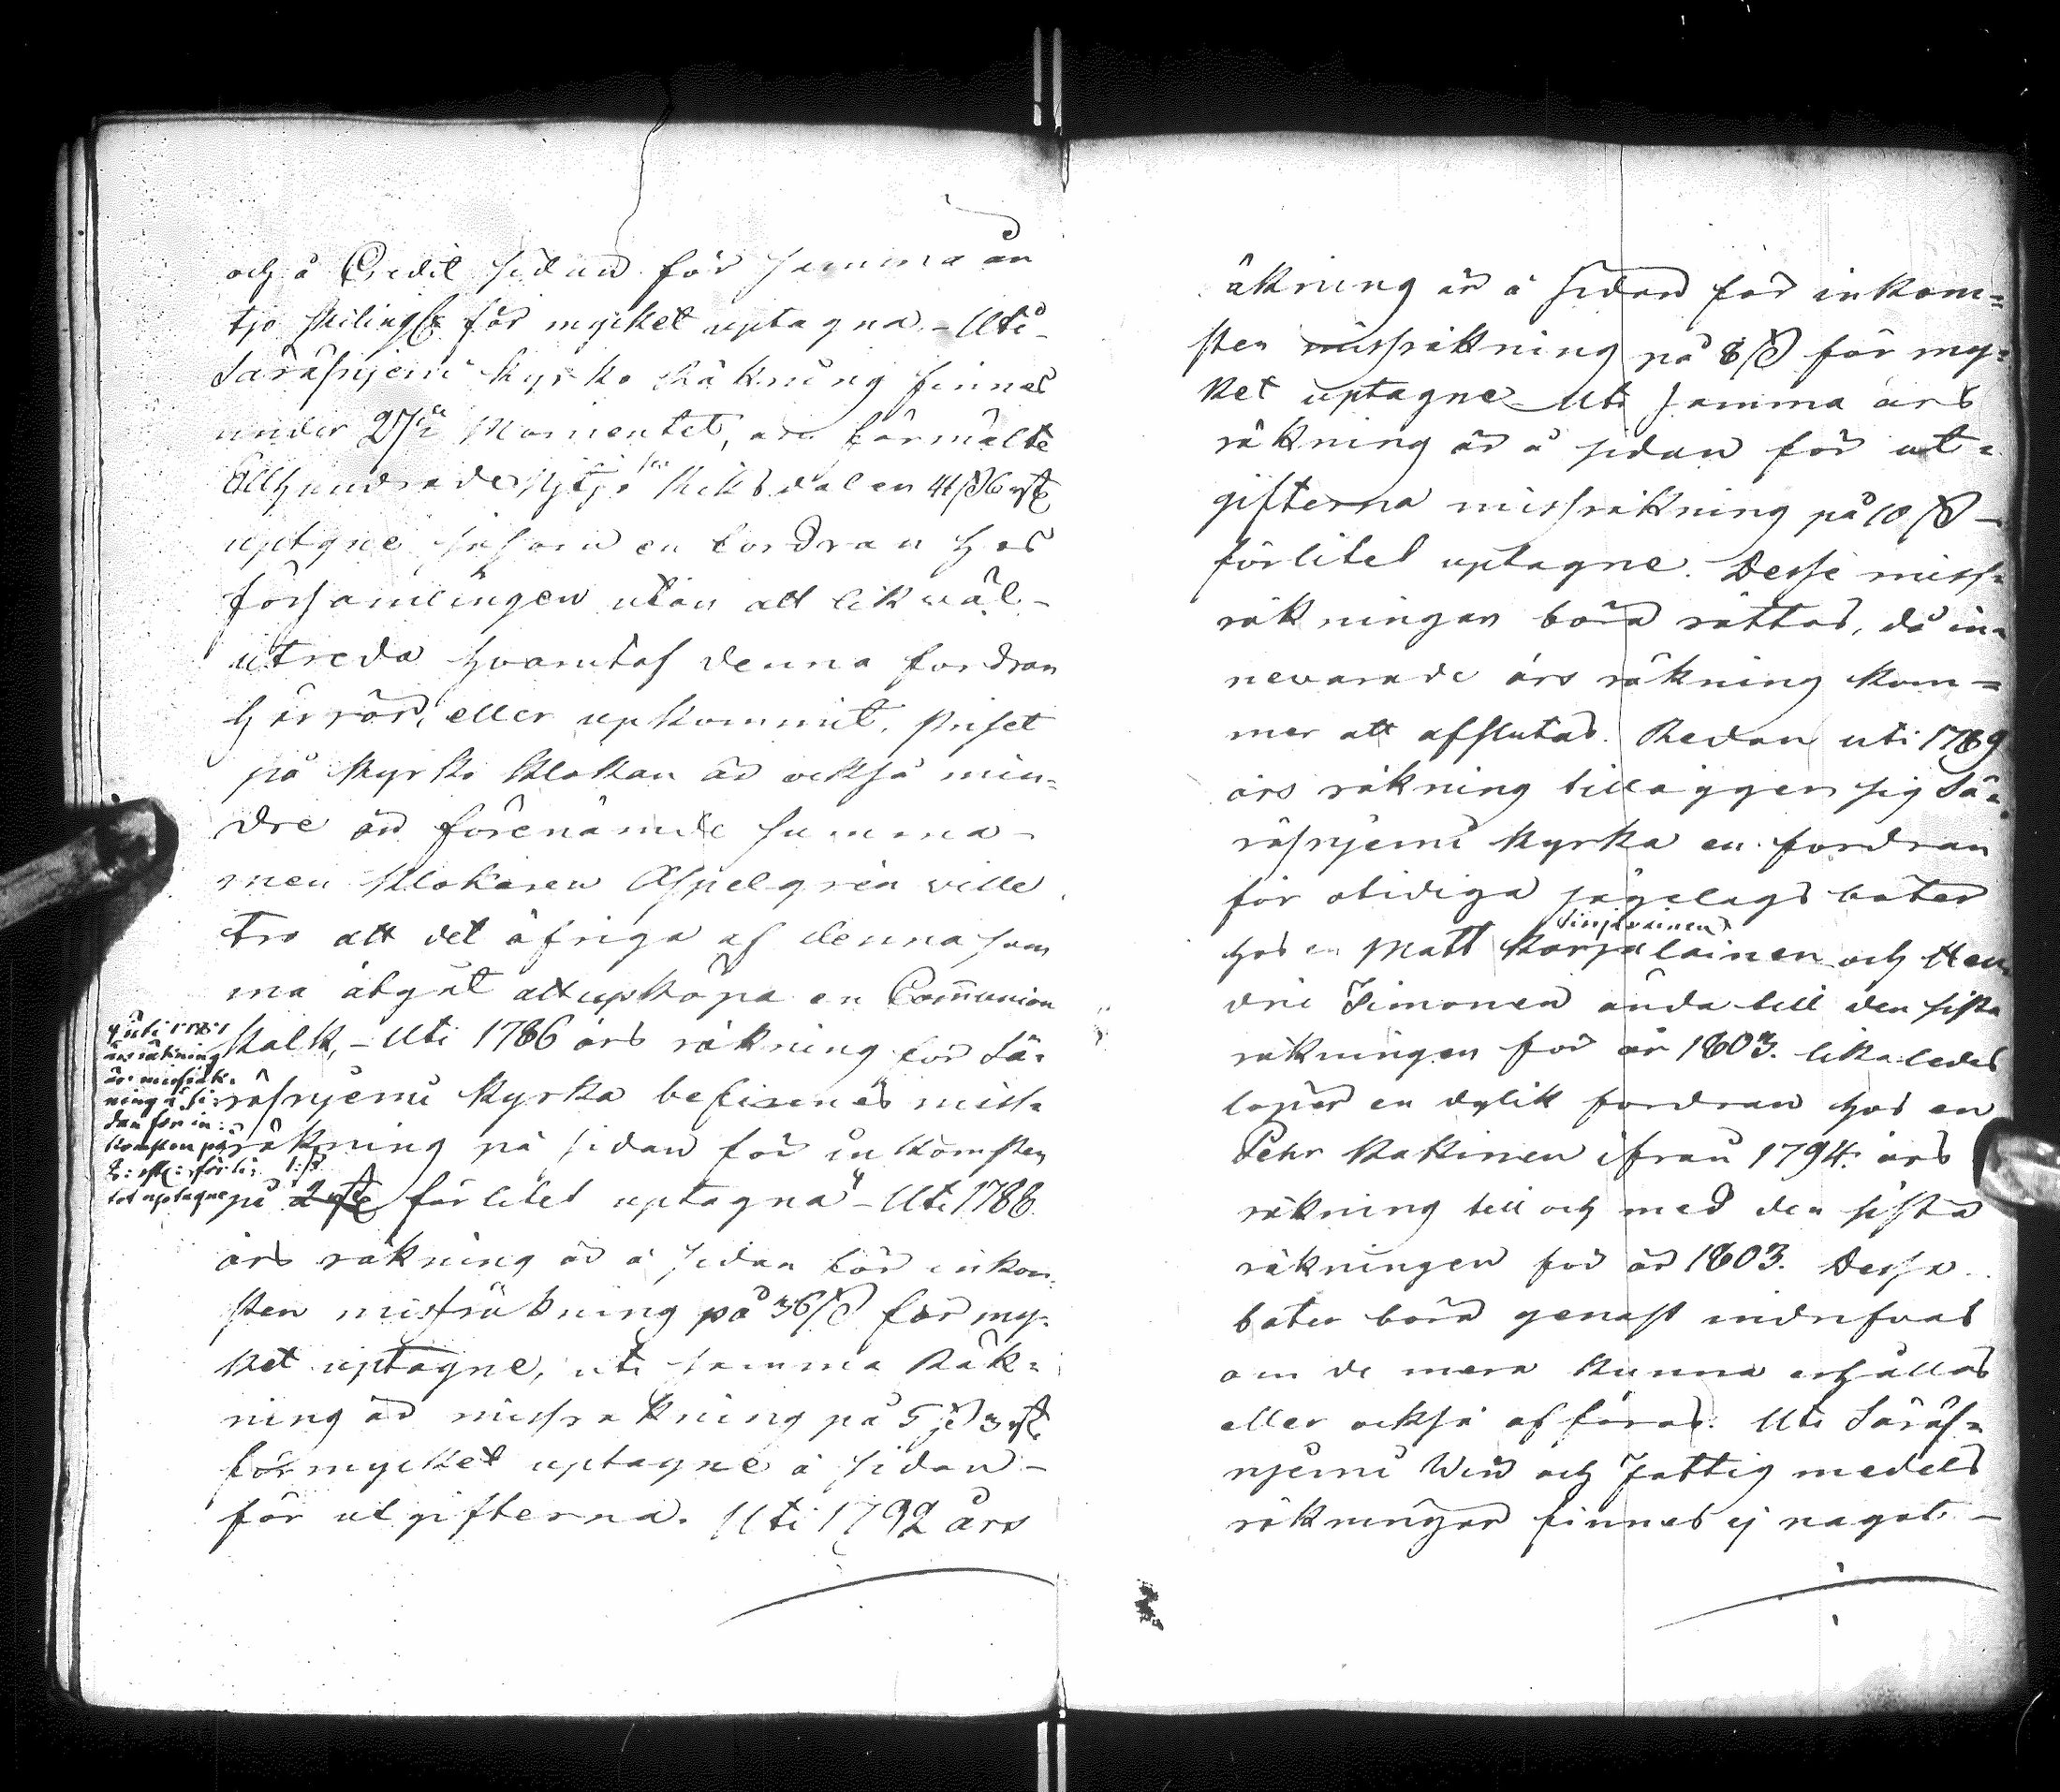 och å Credit sidan för samma år
tjo skilingar för mycket uptagna. - Uti
Säräisnjemi Kyrko Räkning finnes
under 27de Momentet, äro förmälte
Etthundrade sex Riksdaler 41 ß 6 rst
uptgne såsom en fordran hos
församlingen utan att likwäl -
utreda hvarutaf denna fordran
härrör, eller upkommit. Priset
på Kyrko Klokan är också min=
dre än förenämde summa -
men Klokaren Aspelgren ville
tro att det öfriga af denna sum
ma åtgåt att upköpa en Communion
Kalk, - Uti 1786 års räkning för Sä=
räisnjemi Kyrka befinnes miss=
räkning på sidan för inkomsten
1: ß
på 2 rst för litet uptagna" - Uti 1788
års räkning är å sidan för inkom=
sten missräkning på 36 ß för my=
ket uptagne, uti samma Räk=
ning är missräkning på 5 ß 3 rst
för mycket uptagne å sidan -
för utgifterna. Uti 1792 års
" uti 1787
års räkning
är missräk=
ning å si=
dan för in=
komsten på
2: rst: för li=
tet uptagne
räkning är å sidan för inkom=
sten missräkning på 8 ß för my=
ket uptagne. Uti samma års
räkning är å sidan för ut=
gifterna missräkning på 10 ß -
för litet uptagne. Desse miss=
räkningar böra rättas, då in=
nevarade års räkning kom=
mer att afslutas. Redan uti 1789
års räkning tillägger sig Sä=
räisnjemi Kyrka en fordran
för otidiga sägelags böter
hos en Matt Karjalainen och Hen
dric Timonen ända till den sista
räkningen för år 1803. likaledes
löper en dylik fordran hos en
Pehr Kakinen ifrån 1794. års
räkning till och med den sista
räkningen för år 1803. Dessa
böter böra genast indrifvas
om de mera kunna erhållas
eller också afföras. Uti Säräis=
njemi Win och Fattig medels
räkningar finnes ej något -